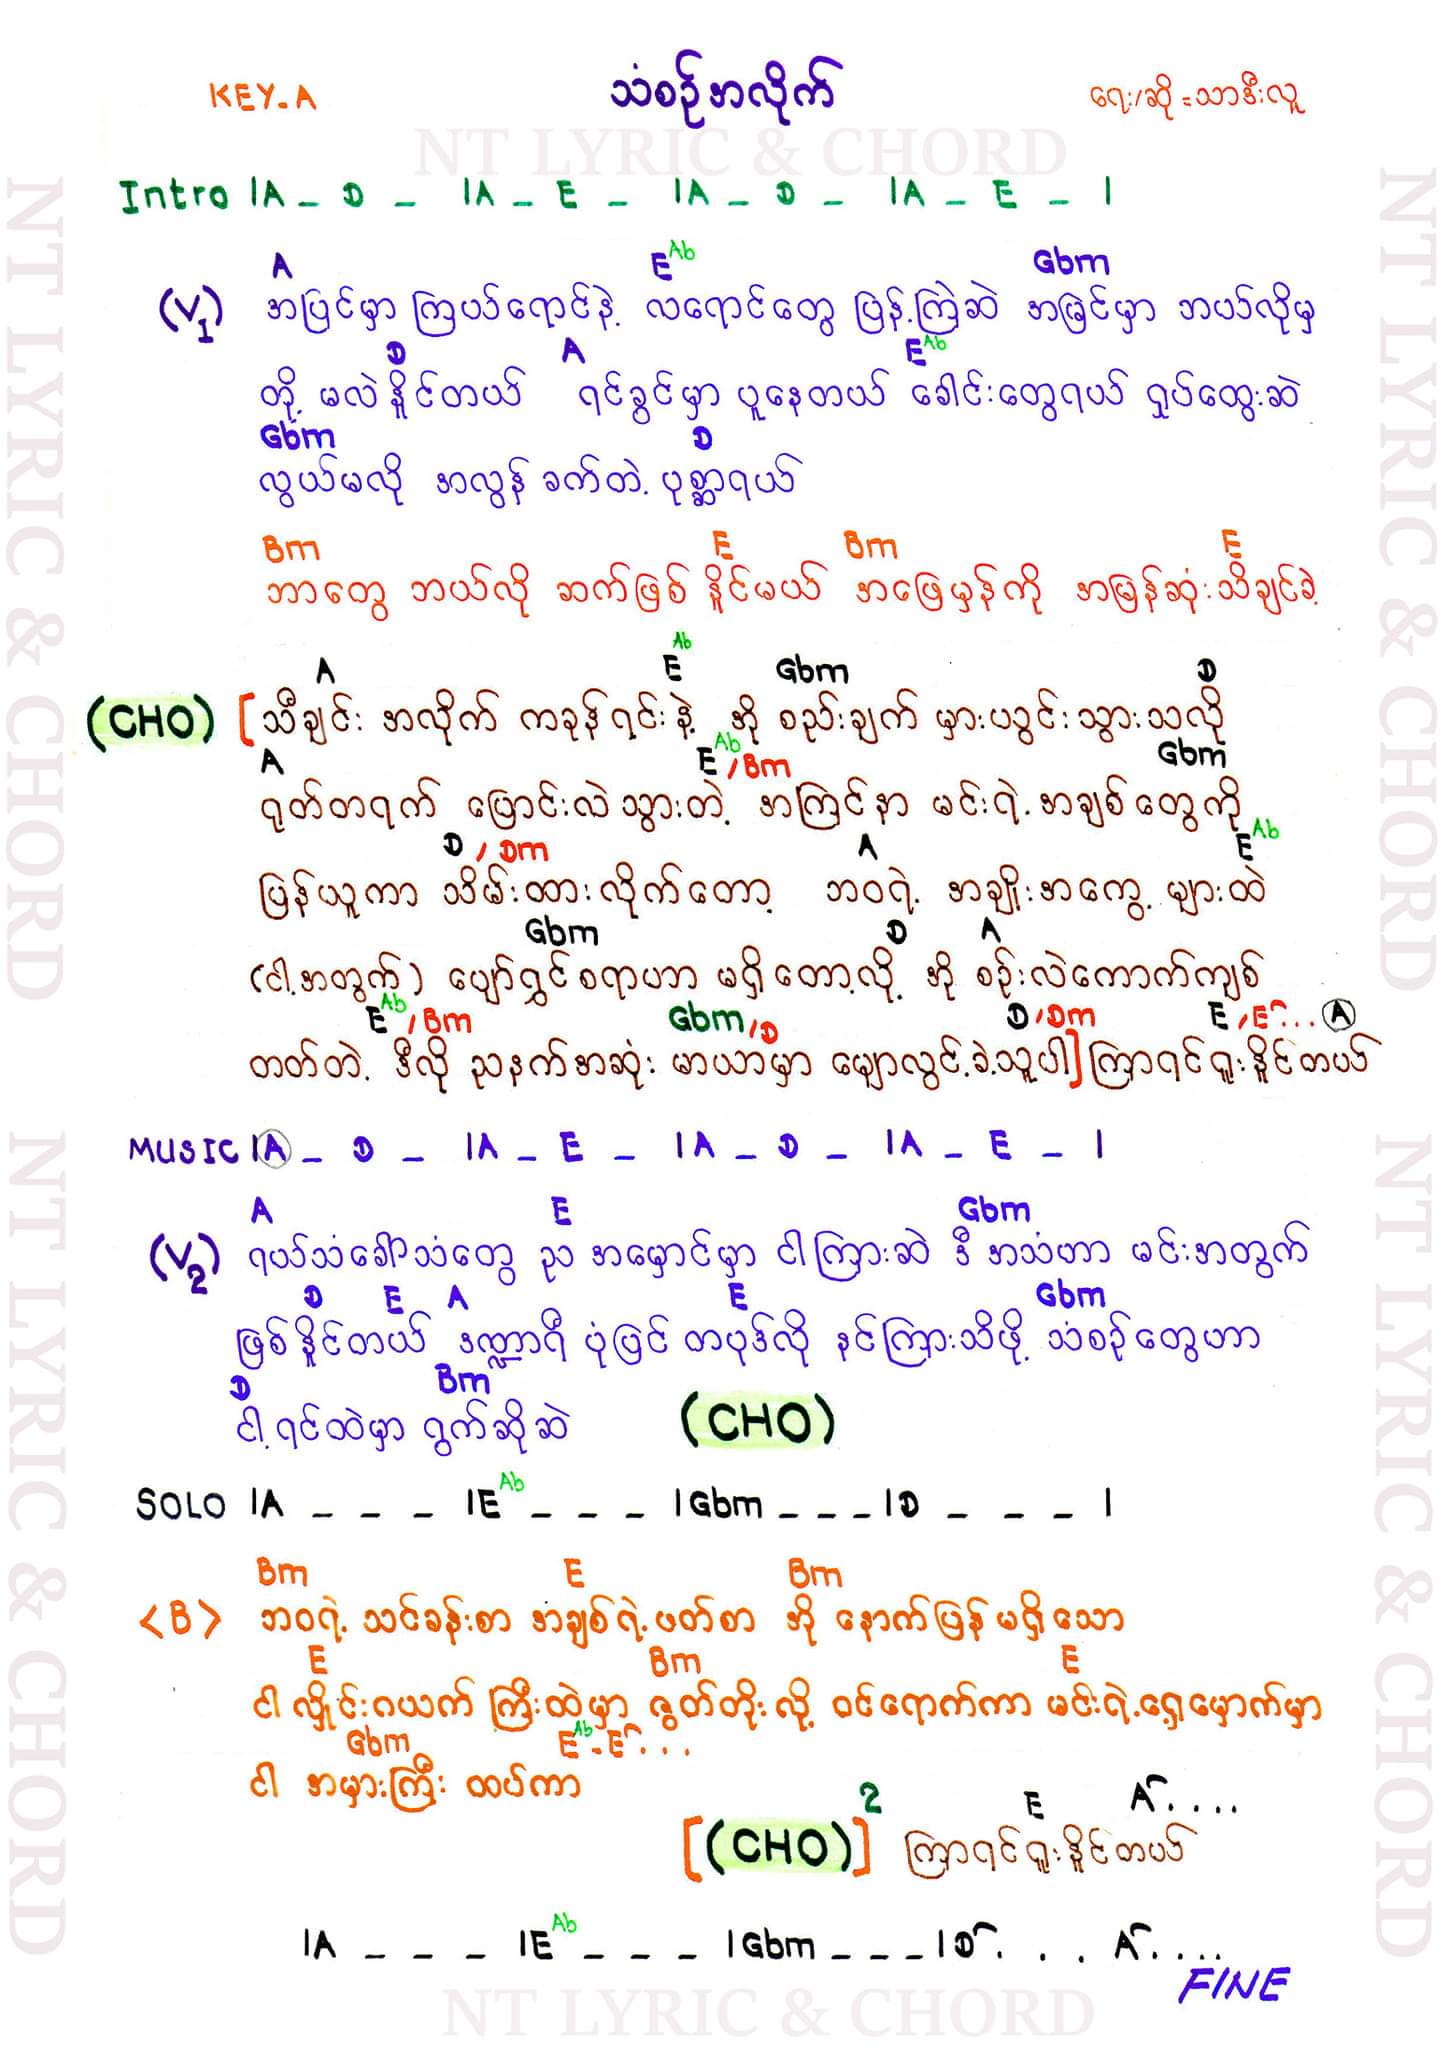 KEY-A သံစဉ်အလိုက် ရေး/ဆို = သာဒီးလူ
NT LYRIC & CHORD
Intro |A _ D _ |A _ E _ |A _ D _ |A _ E _ |
A E Ab Gbm
(V1) အပြင်မှာ ကြယ်ရောင်နဲ့ လရောင်တွေ ပြန့်ကြဲဆဲ အမြင်မှာ ဘယ်လိုမှ
D A E Ab
တို့ မလဲနိူင်တယ် ရင်ခွင်မှာ ပူနေတယ် ခေါင်းတွေရယ် ရှုပ်ထွေးဆဲ
Gbm D
လွယ်မလို အလွန်ခက်တဲ့ ပုစ္ဆာရယ်
Bm E Bm E
ဘာတွေ ဘယ်လို ဆက်ဖြစ်နိူင်မယ် အဖြေမှန်ကို အမြန်ဆုံးသိချင်ခဲ့
A E Ab Gbm D
(CHO) [သီချင်း အလိုက် ကခုန်ရင်းနဲ့ အို စည်းချက် မှားယွင်းသွားသလို
A E Ab /Bm Gbm
ရုတ်တရက် ပြောင်းလဲသွားတဲ့ အကြင်နာ မင်းရဲ့အချစ်တွေကို
D / Dm A E Ab
ပြန်ယူကာ သိမ်းထားလိုက်တော့ ဘဝရဲ့ အချိုးအကွေ့များထဲ
Gbm D A
(ငါ့အတွက်) ပျော်ရွှင်စရာဟာ မရှိတော့လို့ အို စဉ်းလဲကောက်ကျစ်
E Ab /Bm Gbm/D D/Dm E/E... A
တတ်တဲ့ ဒီလို ညနက်အဆုံး မာယာမှာ မျောလွင့်ခဲ့သူပါ] ကြာရင်ရူးနိူင်တယ်
MUSIC |A _ D _ |A _ E _ |A _ D _ |A _ E _ |
A E Gbm
(V2) ရယ်သံခေါ်သံတွေ ည အမှောင်မှာ ငါကြားဆဲ ဒီ အသံဟာ မင်းအတွက်
D E A E Gbm
ဖြစ်နိူင်တယ် ဒဏ္ဍာရီ ပုံပြင် တပုဒ်လို နင်ကြားသိဖို့ သံစဉ်တွေဟာ
D Bm
ငါ့ရင်ထဲမှာ ရွက်ဆိုဆဲ (CHO)
SOLO |A _ _ _ |E Ab _ _ _ |Gbm _ _ _ |D _ _ _ |
Bm E Bm
<B> ဘဝရဲ့ သင်ခန်းစာ အချစ်ရဲ့ဖတ်စာ အို နောက်ပြန်မရှိသော
E Bm E
ငါ လှိုင်းဂယက်ကြီးထဲမှာ ဇွတ်တိုးလို့ ဝင်ရောက်ကာ မင်းရဲ့ရှေ့မှောက်မှာ
Gbm E Ab - E...
ငါ အမှားကြီး ထပ်ကာ
[(CHO)]2 E A....
ကြာရင်ရူးနိူင်တယ်
|A _ _ _ |E Ab _ _ _ |Gbm _ _ _ |D . . . A....
FINE
NT LYRIC & CHORD
NT LYRIC & CHORD
NT LYRIC & CHORD
NT LYRIC & CHORD
NT LYRIC & CHORD